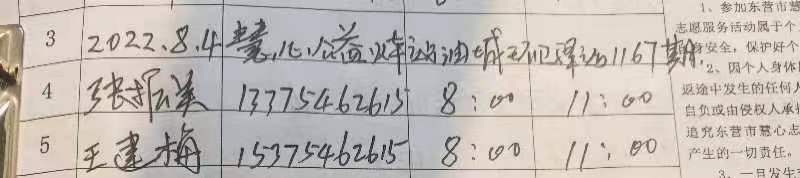 3 2022.8.4 慧心公益 油城 1167期
4 张振美 13375462615 8:00 11:00
5 王建梅 15375462615 8:00 11:00
1、参加东营市慧
志愿服务活动属于个
身安全,保护好个
2、因个人身体
返途中发生的任何人
自负或由侵权人承
追究东营市慧心志
产生的一切责任。
3、一旦发生